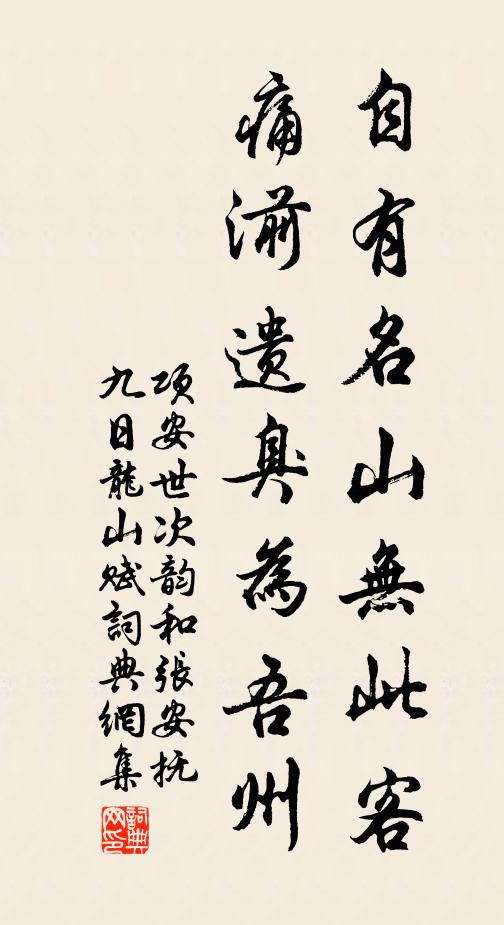 自有名山無此客
痛湔遺臭為吾州
項安世次韵和張安抚
九日龍山賦詞典網集
詞典网印